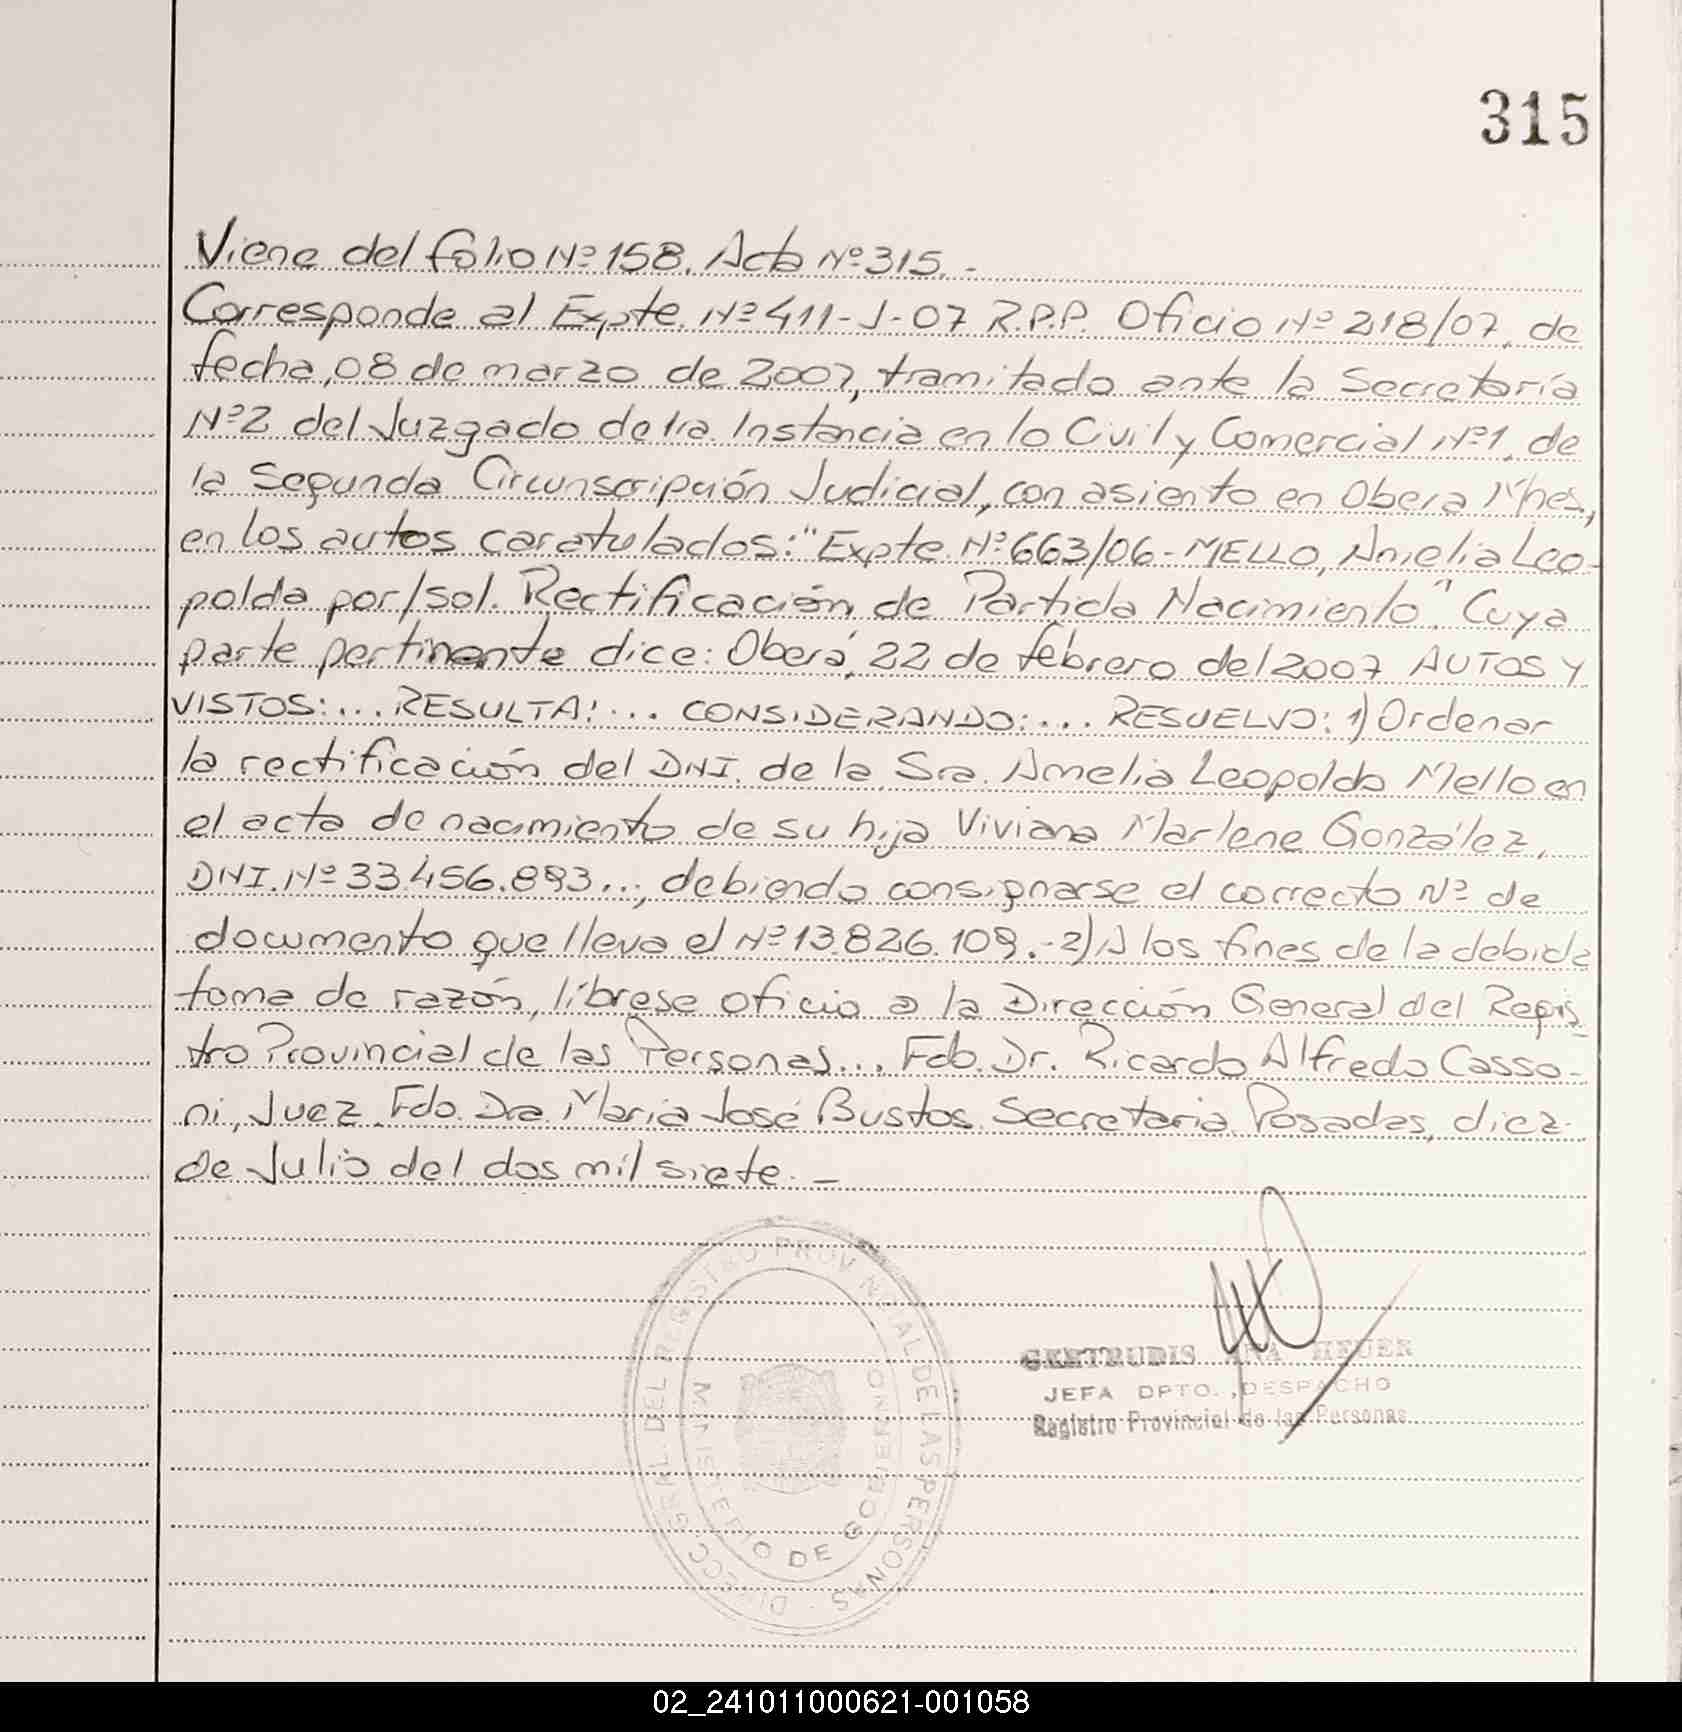 315
Viene del folio Nº 158. Acta Nº 315.-
Corresponde al Expte. Nº 411-J-07 R.P.P. Oficio Nº 218/07, de
fecha, 08 de marzo de 2007, tramitado ante la Secretaría
Nº2 del Juzgado de 1ra. Instancia en lo Civil y Comercial Nº1, de
la Segunda Circunscripción Judicial, con asiento en Obera Mnes,
en los autos caratulados: "Expte. Nº 663/06 - MELLO, Amelia Leo-
polda por/sol. Rectificación de Partida Nacimiento". Cuya
parte pertinente dice: Oberá, 22 de febrero del 2007 AUTOS Y
VISTOS:... RESULTA:... CONSIDERANDO:... RESUELVO: 1) Ordenar
la rectificación del DNI. de la Sra. Amelia Leopolda Mello en
el acta de nacimiento de su hija Viviana Marlene González,
DNI. Nº 33.456.893..., debiendo consignarse el correcto Nº de
documento que lleva el Nº 13.826.109.- 2) A los fines de la debida
toma de razón, líbrese oficio a la Dirección General del Regis-
tro Provincial de las Personas... Fdo. Dr. Ricardo Alfredo Casso-
ni, Juez. Fdo. Dra. María José Bustos. Secretaria. Posadas, diez
de Julio del dos mil siete.-
DIRECC. GRAL. DEL REGISTRO PROVINCIAL DE LAS PERSONAS
MINISTERIO DE GOBIERNO
GERTRUDIS ANA HEUER
JEFA DPTO. DESPACHO
Registro Provincial de las Personas
02_241011000621-001058